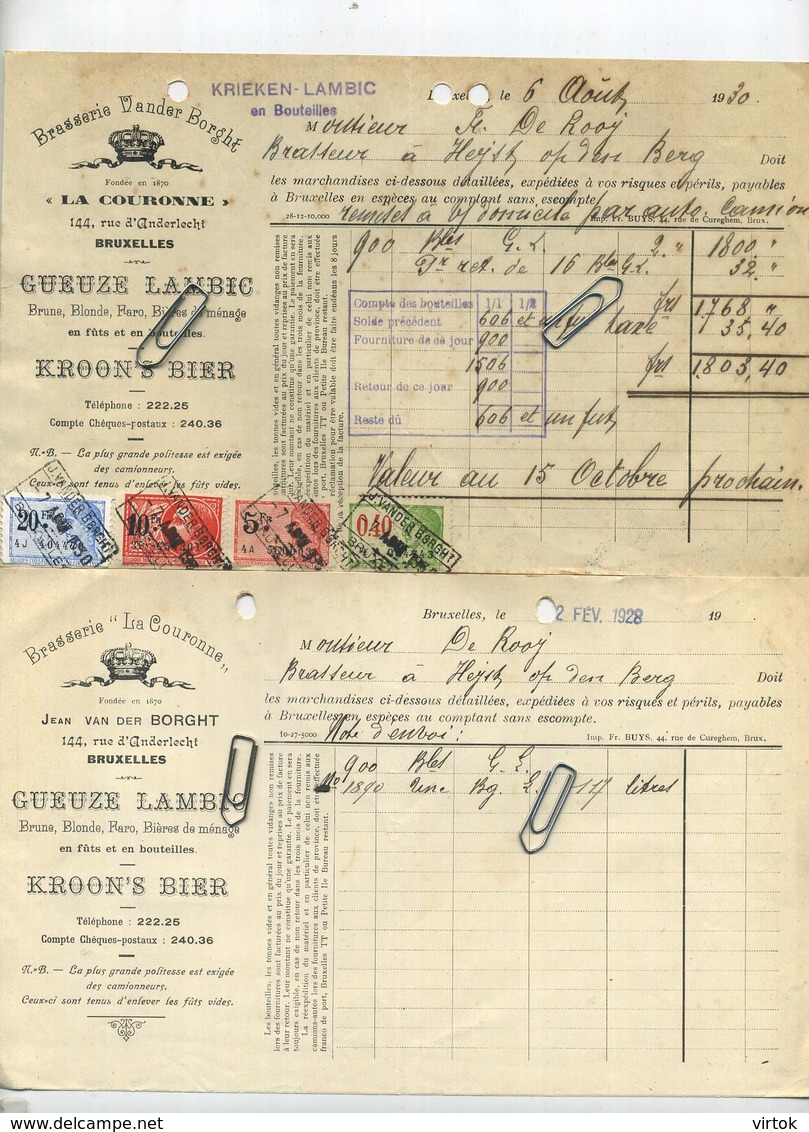 KRIEKEN-LAMBIC
en Bouteilles
le 6 Août 1930.
Brasserie Vander Borght
Fondée en 1870
« LA COURONNE »
144, rue d'Anderlecht
BRUXELLES
GUEUZE LAMBIC
Brune, Blonde, Faro, Bières de ménage
en fûts et en bouteilles.
KROON'S BIER
Téléphone : 222.25
Compte Chèques-postaux : 240.36
N.-B. — La plus grande politesse est exigée
des camionneurs.
Ceux-ci sont tenus d'enlever les fûts vides.
Monsieur Fr. De Rooij
Brasseur à Heyst op den Berg Doit
les marchandises ci-dessous détaillées, expédiées à vos risques et périls, payables
à Bruxelles en espèces au comptant sans escompte.
28-12-10,000 Imp. Fr. BUYS, 44, rue de Cureghem, Brux.
remises à domicile par auto. Camion
900 Bles G. L. 2. " 1800. "
Pr ret. de 16 Bles G.L. 32. "
frs 1.768 "
taxe 35,40
frs 1.803,40
Compte des bouteilles 1/1 1/2
Solde précédent 606 et un fut
Fourniture de ce jour 900
1506
Retour de ce jour 900
Reste dû 606 et un fut
Valeur au 15 Octobre prochain.
Les bouteilles, les tonnes vides et en général toutes vidanges non remises
lors des fournitures sont facturées au prix du jour et reprises au prix de facture
à leur retour. Leur montant ne constitue qu'une garantie. Le paiement en sera
toujours exigible, en cas de non retour dans les trois mois de la fourniture.
La réexpédition du matériel et en particulier de celui non remis aux
camions-autos lors des fournitures aux clients de province, doit être effectuée
franco de port, Bruxelles TT ou Petite Ile Bureau restant.
réclamation pour être valable doit être faite endéans les 8 jours
de réception de la facture.
20 Frs
4J
10
5 Frs
4A
0.40
J. VANDER BORGHT
J. VANDER BORGHT
J. VANDER BORGHT
J. VANDER BORGHT
Bruxelles, le 2 FÉV. 1928 19
Brasserie "La Couronne"
Fondée en 1870
JEAN VAN DER BORGHT
144, rue d'Anderlecht
BRUXELLES
GUEUZE LAMBIC
Brune, Blonde, Faro, Bières de ménage
en fûts et en bouteilles.
KROON'S BIER
Téléphone : 222.25
Compte Chèques-postaux : 240.36
N.-B. — La plus grande politesse est exigée
des camionneurs.
Ceux-ci sont tenus d'enlever les fûts vides.
Monsieur De Rooij
Brasseur à Heyst op den Berg Doit
les marchandises ci-dessous détaillées, expédiées à vos risques et périls, payables
à Bruxelles en espèces au comptant sans escompte.
10-27-5000 Note d'envoi : Imp. Fr. BUYS, 44, rue de Cureghem, Brux.
900 Bles G. L.
No 1890 Une Bg. L. 117 litres
Les bouteilles, les tonnes vides et en général toutes vidanges non remises
lors des fournitures sont facturées au prix du jour et reprises au prix de facture
à leur retour. Leur montant ne constitue qu'une garantie. Le paiement en sera
toujours exigible, en cas de non retour dans les trois mois de la fourniture.
La réexpédition du matériel et en particulier de celui non remis aux
camions-autos lors des fournitures aux clients de province, doit être effectuée
franco de port, Bruxelles TT ou Petite Ile Bureau restant.
virtok